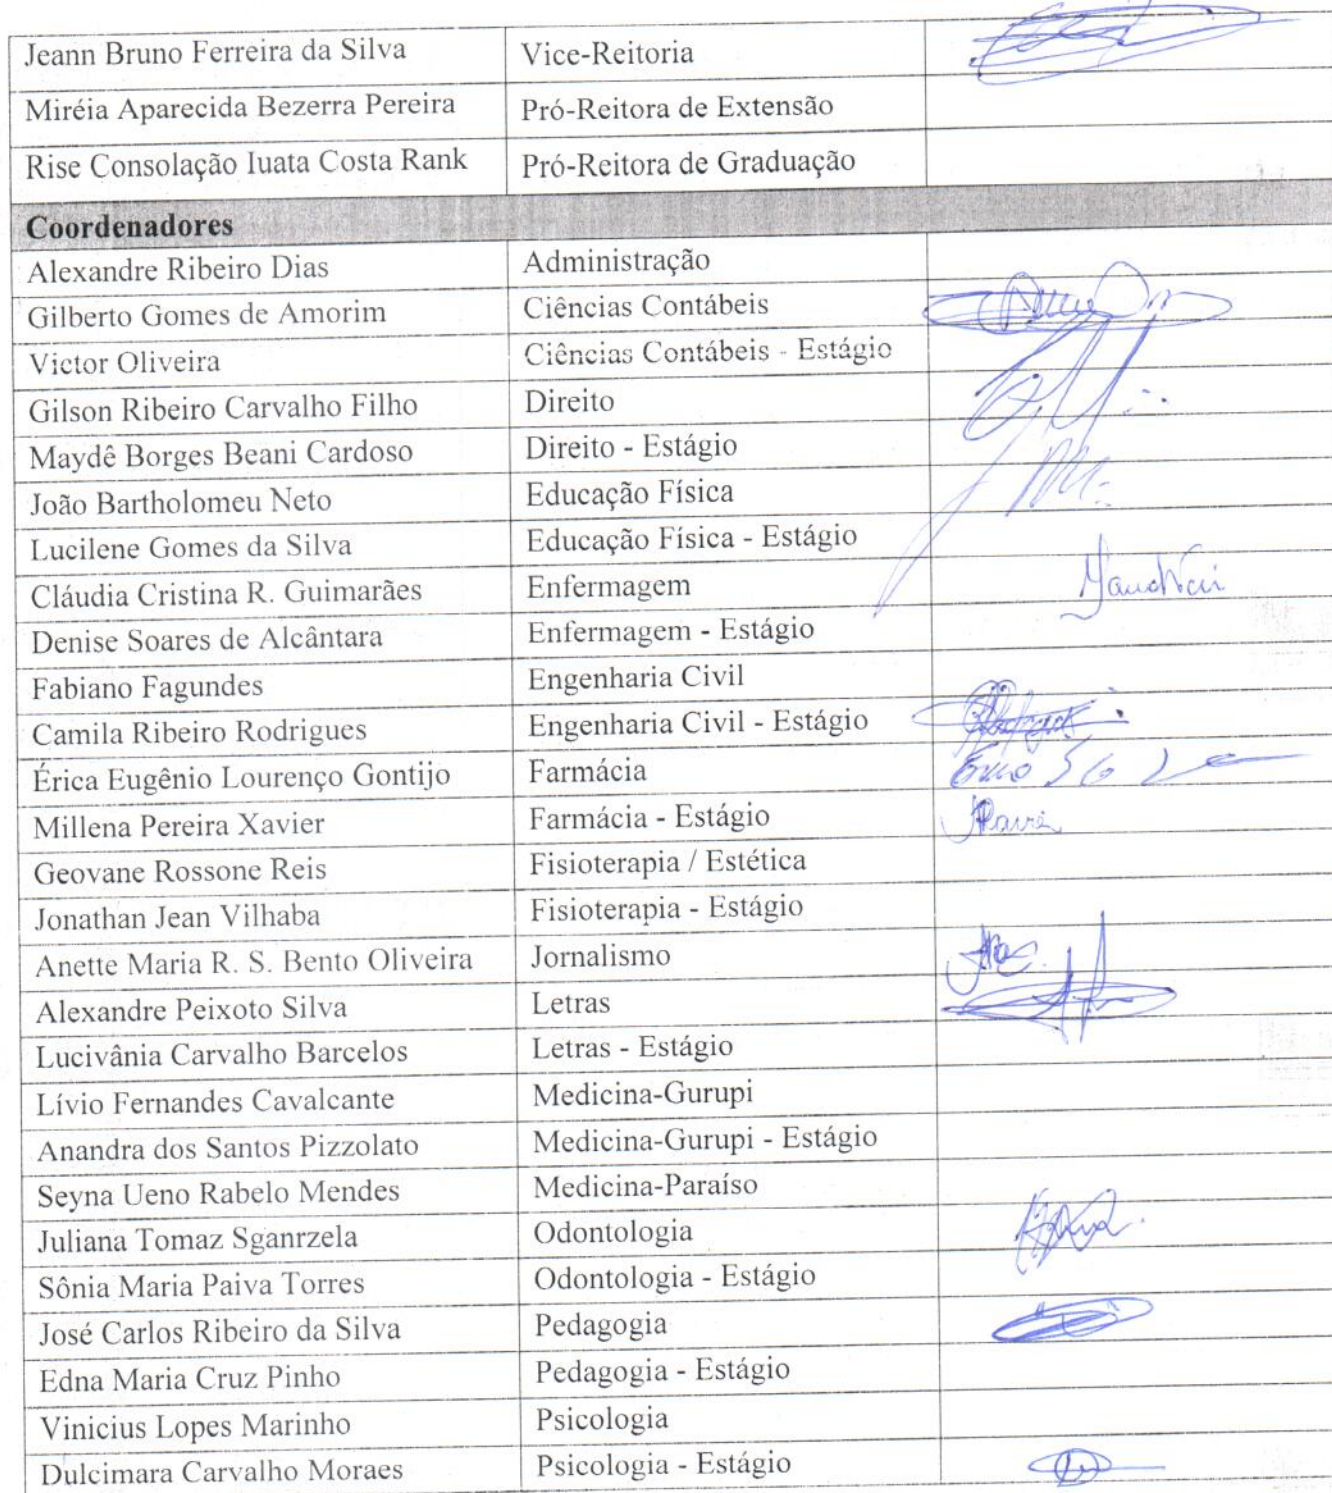 Jeann Bruno Ferreira da Silva Vice-Reitoria
Miréia Aparecida Bezerra Pereira Pró-Reitora de Extensão
Rise Consolação Iuata Costa Rank Pró-Reitora de Graduação
Coordenadores
Alexandre Ribeiro Dias Administração
Gilberto Gomes de Amorim Ciências Contábeis
Victor Oliveira Ciências Contábeis - Estágio
Gilson Ribeiro Carvalho Filho Direito
Maydê Borges Beani Cardoso Direito - Estágio
João Bartholomeu Neto Educação Física
Lucilene Gomes da Silva Educação Física - Estágio
Cláudia Cristina R. Guimarães Enfermagem
Denise Soares de Alcântara Enfermagem - Estágio
Fabiano Fagundes Engenharia Civil
Camila Ribeiro Rodrigues Engenharia Civil - Estágio
Érica Eugênio Lourenço Gontijo Farmácia
Millena Pereira Xavier Farmácia - Estágio
Geovane Rossone Reis Fisioterapia / Estética
Jonathan Jean Vilhaba Fisioterapia - Estágio
Anette Maria R. S. Bento Oliveira Jornalismo
Alexandre Peixoto Silva Letras
Lucivânia Carvalho Barcelos Letras - Estágio
Lívio Fernandes Cavalcante Medicina-Gurupi
Anandra dos Santos Pizzolato Medicina-Gurupi - Estágio
Seyna Ueno Rabelo Mendes Medicina-Paraíso
Juliana Tomaz Sganrzela Odontologia
Sônia Maria Paiva Torres Odontologia - Estágio
José Carlos Ribeiro da Silva Pedagogia
Edna Maria Cruz Pinho Pedagogia - Estágio
Vinicius Lopes Marinho Psicologia
Dulcimara Carvalho Moraes Psicologia - Estágio